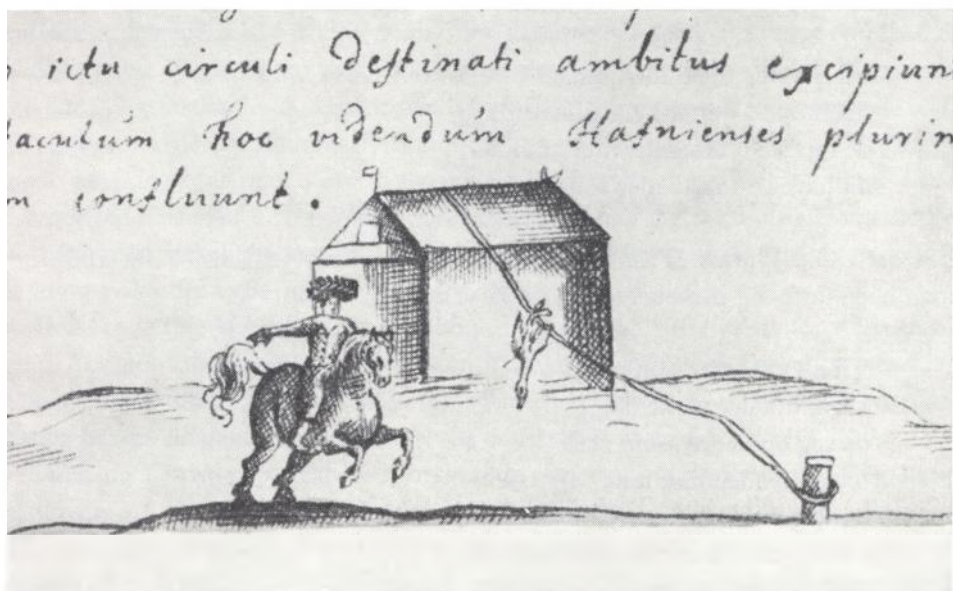 ictu circuli destinati ambitus excipiun
taculum hoc videndum Hafnienses plurim
confluunt.